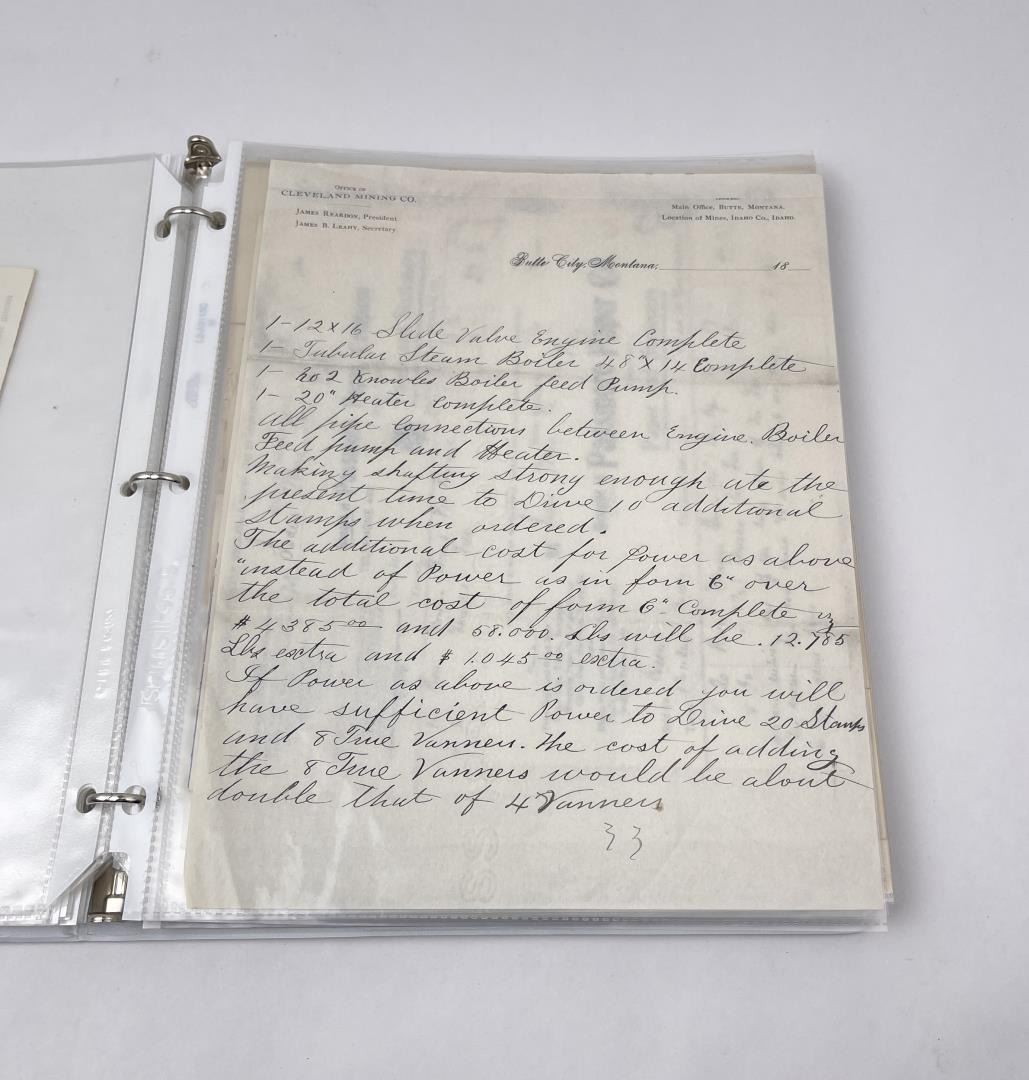 OFFICE OF
CLEVELAND MINING CO.
JAMES REARDON, President
JAMES B. LEAHY, Secretary
Main Office, BUTTE, MONTANA.
Location of Mines, IDAHO CO., IDAHO.
Butte City, Montana, 18
1- 12 x 16 Slide Valve Engine Complete
1- Tubular Steam Boiler 48" X 14 Complete
1- No 2 Knowles Boiler feed Pump.
1- 20" Heater Complete.
All pipe Connections between Engine. Boiler
Feed pump and Heater.
Making shafting strong enough at the
present time to Drive 10 additional
stamps when ordered.
The additional cost for Power as above
instead of Power as in form 6" over
the total cost of form 6" Complete viz
$4385 00 and 58.000. Lbs will be. 12.785
Lbs exctra and $1.045 00 exctra.
If Power as above is ordered you will
have sufficient Power to Drive 20 Stamps
and 8 True Vanners. The cost of adding
the 8 True Vanners would be about
double that of 4 Vanners
33